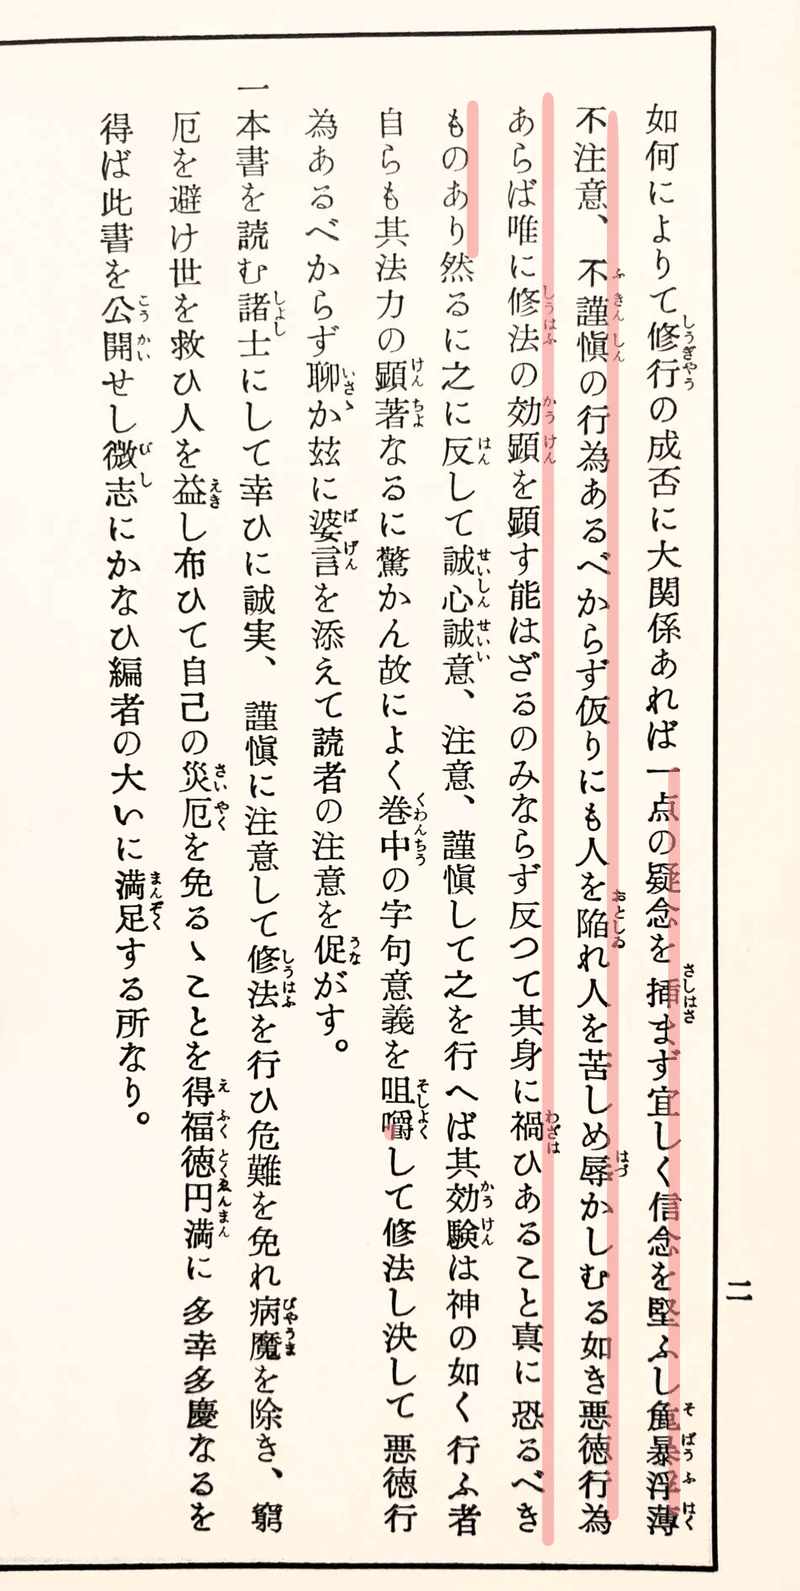 如何によりて修行の成否に大関係あれば一点の疑念を挿まず宜しく信念を堅ふし麁暴浮薄
不注意、不謹愼の行為あるべからず仮りにも人を陥れ人を苦しめ辱かしむる如き悪徳行為
あらば唯に修法の効顕を顕す能はざるのみならず反つて其身に禍ひあること真に恐るべき
ものあり然るに之に反して誠心誠意、注意、謹愼して之を行へば其効験は神の如く行ふ者
自らも其法力の顕著なるに驚かん故によく巻中の字句意義を咀嚼して修法し決して悪徳行
為あるべからず聊か玆に婆言を添えて読者の注意を促がす。
一本書を読む諸士にして幸ひに誠実、謹愼に注意して修法を行ひ危難を免れ病魔を除き、窮
厄を避け世を救ひ人を益し布ひて自己の災厄を免るゝことを得福徳円満に多幸多慶なるを
得ば此書を公開せし微志にかなひ編者の大いに満足する所なり。
二